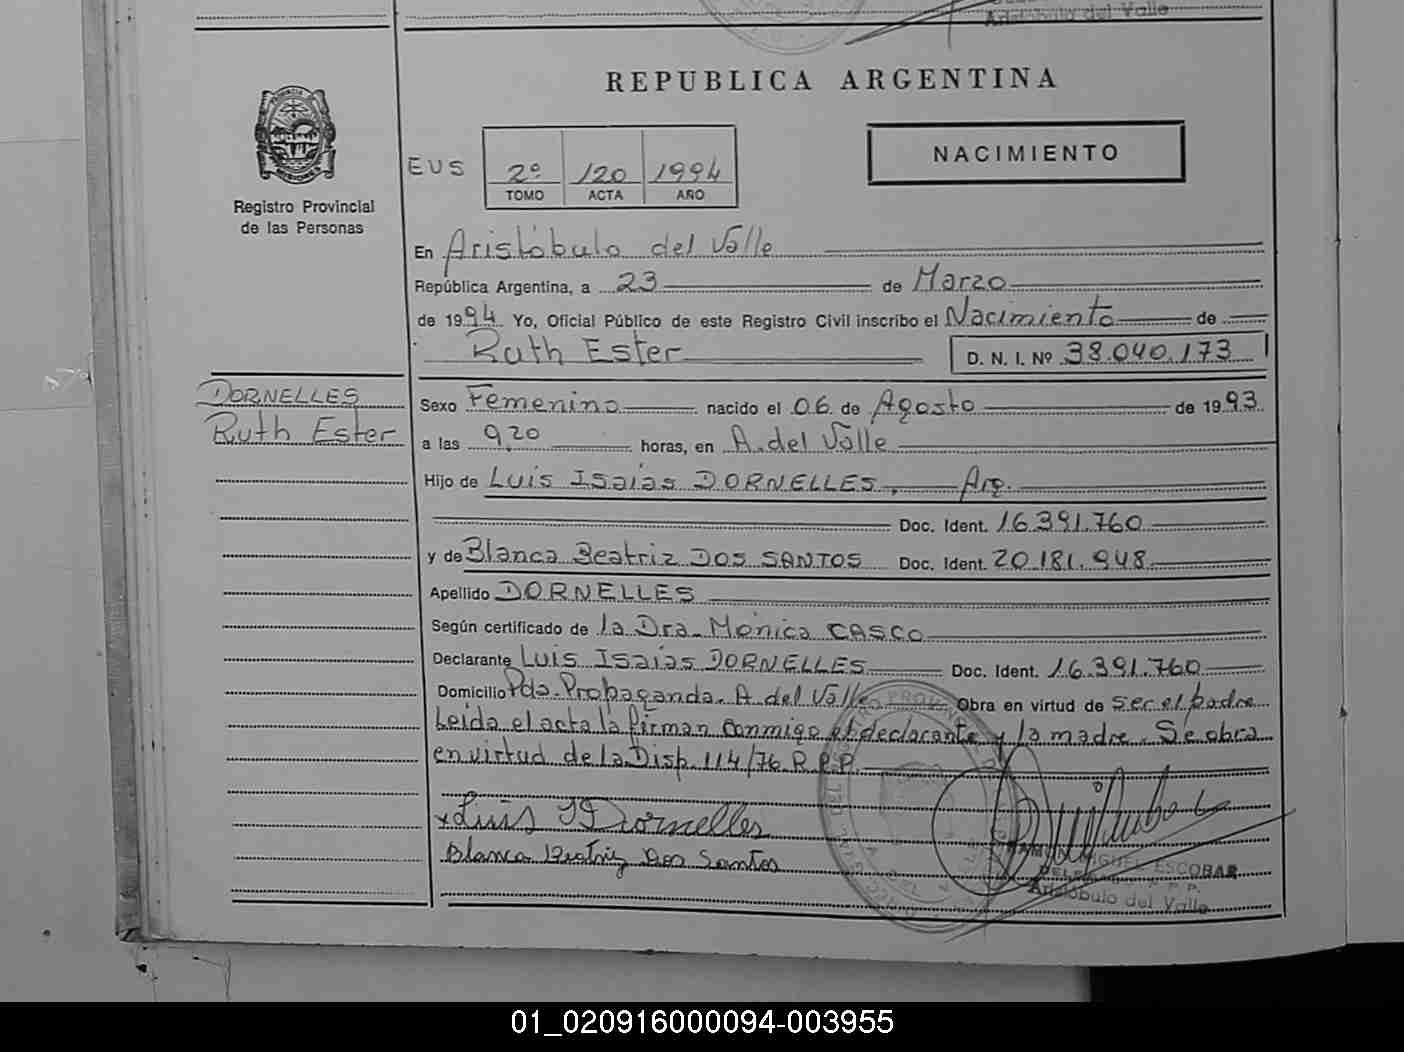 Aristóbulo del Valle
REPUBLICA ARGENTINA
Registro Provincial
de las Personas
EUS 2º 120 1994
TOMO ACTA AÑO
NACIMIENTO
En Aristóbulo del Valle
República Argentina, a 23 de Marzo
de 1994 Yo, Oficial Público de este Registro Civil inscribo el Nacimiento de
Ruth Ester D. N. I. Nº 38.040.173
DORNELLES
Ruth Ester
Sexo Femenino nacido el 06 de Agosto de 1993
a las 9,20 horas, en A. del Valle
Hijo de Luis Isaías DORNELLES, Arg.
Doc. Ident. 16.391.760
y de Blanca Beatriz DOS SANTOS Doc. Ident. 20.181.948
Apellido DORNELLES
Según certificado de la Dra. Mónica CASCO
Declarante Luis Isaías DORNELLES Doc. Ident. 16.391.760
Domicilio Pda. Propaganda. A. del Valle Obra en virtud de ser el padre
Leída el acta la firman conmigo el declarante y la madre. Se obra
en virtud de la Disp. 114/76 R.P.P.
Luis I Dornelles
Blanca Beatriz Dos Santos
MIGUEL ESCOBAR
Aristóbulo del Valle
01_020916000094-003955